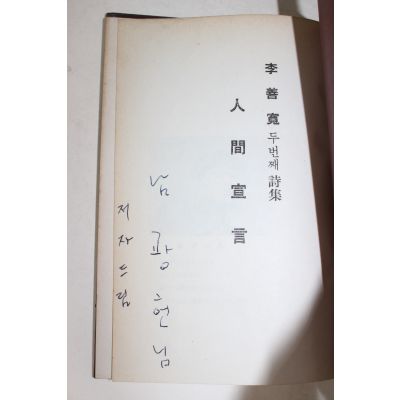 李善寬 두번째 詩集
人間宣言
남광현님
저자드림